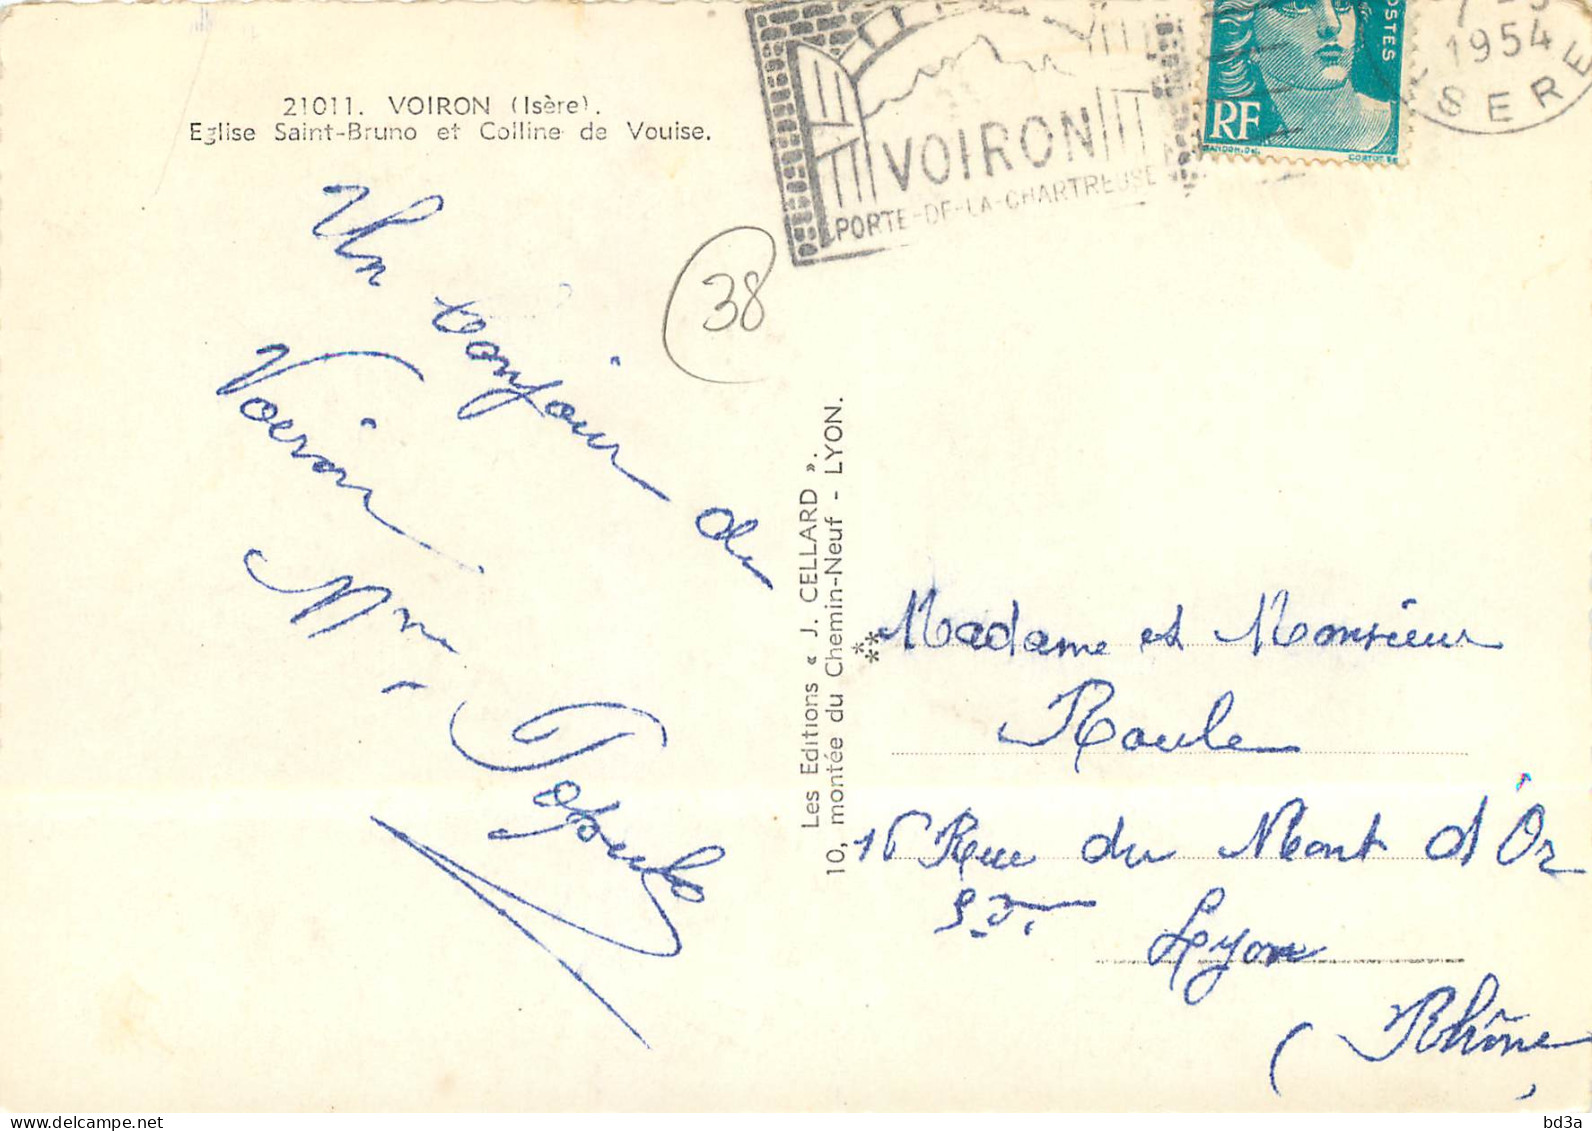 21011. VOIRON (Isère).
Eglise Saint-Bruno et Colline de Vouise.
VOIRON
PORTE-DE-LA-CHARTREUSE
POSTES
RF
GANDON.Del.
CORTOT Sc
1954
ISERE
38
Un bonjour de
Voiron
Les Editions « J. CELLARD ».
10, montée du Chemin-Neuf - LYON.
Madame et Monsieur
Roule
16 Rue du Mont d'Or
Lyon
(Rhône
bd3a